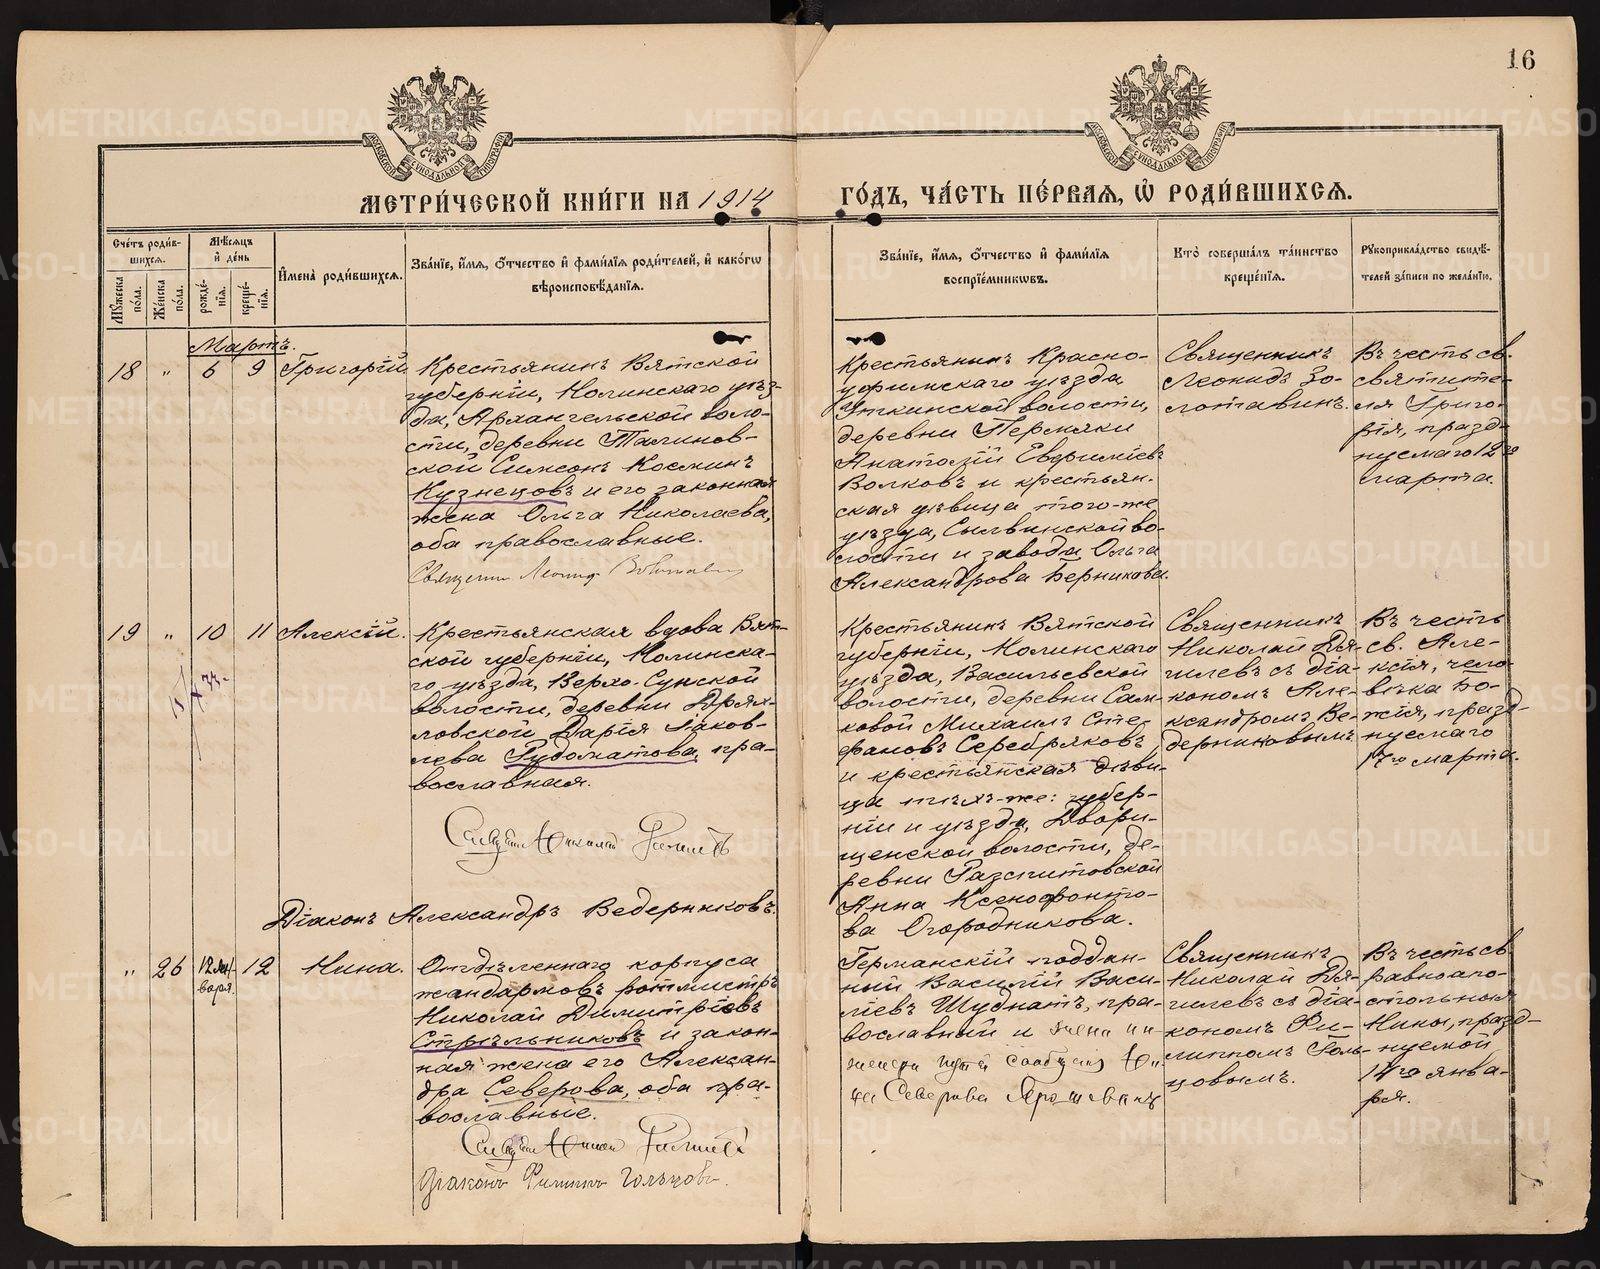 16
МОСКОВСКОЙ СУНОДАЛЬНОЙ ТИПОГРАФІИ
МОСКОВСКОЙ СУНОДАЛЬНОЙ ТИПОГРАФІИ
МЕТРИ́ЧЕСКОЙ КНИ́ГИ НА 1914
ГО́ДЪ, ЧА́СТЬ ПЕ́РВАѦ, Ѡ҆ РОДИ́ВШИХСѦ.
Сче́тъ роди́в-
шихсѧ.
Мꙋ́жеска по́ла.
Же́нска по́ла.
Мѣ́сѧцъ
и҆ де́нь
рожде́-нїѧ.
креще́-нїѧ.
И҆мена̀ роди́вшихсѧ.
Зва́нїе, и҆́мѧ, ѻ҆́тчество и҆ фами́лїѧ роди́телей, и҆ како́гѡ
вѣроисповѣ́данїѧ.
Зва́нїе, и҆́мѧ, ѻ҆́тчество и҆ фами́лїѧ
воспрїе́мникѡвъ.
Кто̀ соверша́лъ та́инство
креще́нїѧ.
Рꙋкоприкла́дство свидѣ́-
телей за́писи по жела́нїю.
Мартъ.
18 " 6 9 Григорій.
Крестьянинъ Вятской
губерніи, Нолинскаго уѣз-
да, Архангельской воло-
сти, деревни Талинов-
ской Симеонъ Косминъ
Кузнецовъ и его законная
жена Ольга Николаева,
оба православные.
Священник Леонид Золотавин
Крестьянинъ Красно-
уфимскаго уѣзда,
Уткинской волости,
деревни Пермяки
Анатолій Евфиміевъ
Волковъ и крестьян-
ская дѣвица того-же
уѣзда, Сылвинской во-
лости и завода, Ольга
Александрова Берникова.
Священникъ
Леонидъ Зо-
лотавинъ.
Въ честь св.
святите-
ля Григо-
рія, празд-
нуемаго 12го
марта.
19 " 10 11 Алексій.
Крестьянская вдова Вят-
ской губерніи, Нолинска-
го уѣзда, Верхо-Сунской
волости, деревни Дрях-
ловской Дарія Іаков-
лева Рудоматова, пра-
вославная.
Діаконъ Александръ Ведерниковъ.
Крестьянинъ Вятской
губерніи, Нолинскаго
уѣзда, Васильевской
волости, деревни Сам-
ковой Михаилъ Сте-
фановъ Серебряковъ,
и крестьянская дѣви-
ца тѣхъ-же: губер-
ніи и уѣзда, Двори-
щенской волости, де-
ревни Разситовской
Анна Ксенофонто-
ва Огородникова.
Священникъ
Николай Дя-
гилевъ съ діа-
кономъ Але-
ксандромъ Ве-
дерниковымъ
Въ честь
св. Але-
ксія, чело-
вѣка Бо-
жія, празд-
нуемаго
17го марта.
" 26 12 ян-варя. 12 Нина.
Отдѣленнаго корпуса
жандармовъ ротмистръ
Николай Димитріевъ
Стрѣльниковъ и закон-
ная жена его Алексан-
дра Северова, оба пра-
вославные.
Діаконъ Филиппъ Гольцовъ.
Германскій поддан-
ный Василій Васи-
ліевъ Шуднатъ, пра-
вославный и жена ин-
женера путей сообщенія Ни-
на Северова Ярошевичъ
Священникъ
Николай Дя-
гилевъ съ діа-
кономъ Фи-
липпомъ Голь-
цовымъ.
Въ честь св
равноапо-
стольныя
Нины, празд-
нуемой
14го янва-
ря.
METRIKI.GASO-URAL.RU